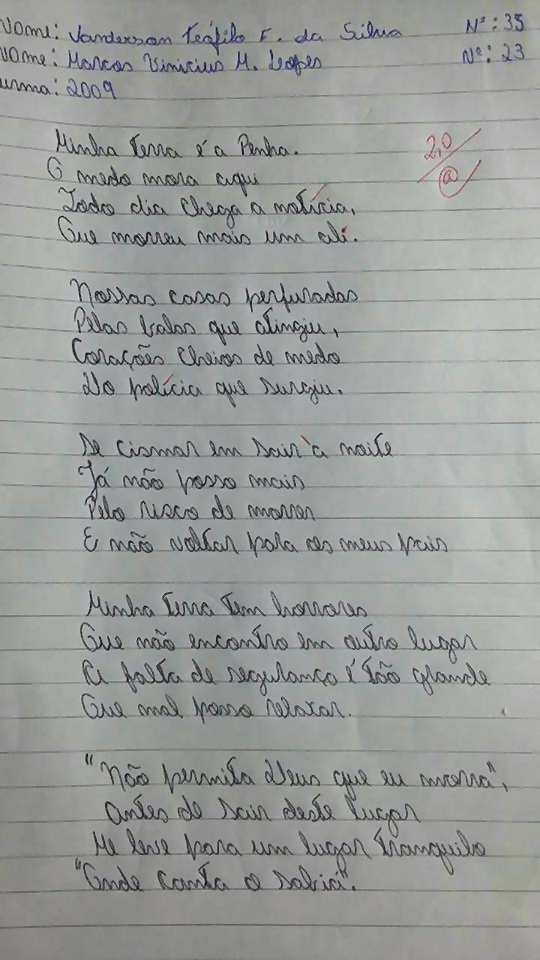 Nome: Vanderson Teófilo F. da Silva Nº: 35
Nome: Marcos Vinicius M. Lopes Nº: 23
urma: 2009
Minha terra é a Penha. 2,0
O medo mora aqui @
Todo dia chega a notícia,
Que morreu mais um ali.
Nossas casas perfuradas
Pelas balas que atingiu,
Corações cheios de medo
Do polícia que surgiu.
Se cismar em sair à noite
Já não posso mais
Pelo risco de morrer
E não voltar para os meus pais
Minha terra tem horrores
Que não encontro em outro lugar
A falta de segurança é tão grande
Que mal posso relaxar.
"Não permita Deus que eu morra",
Antes de sair deste lugar
Me leve para um lugar tranquilo
"Onde canta o sabiá".